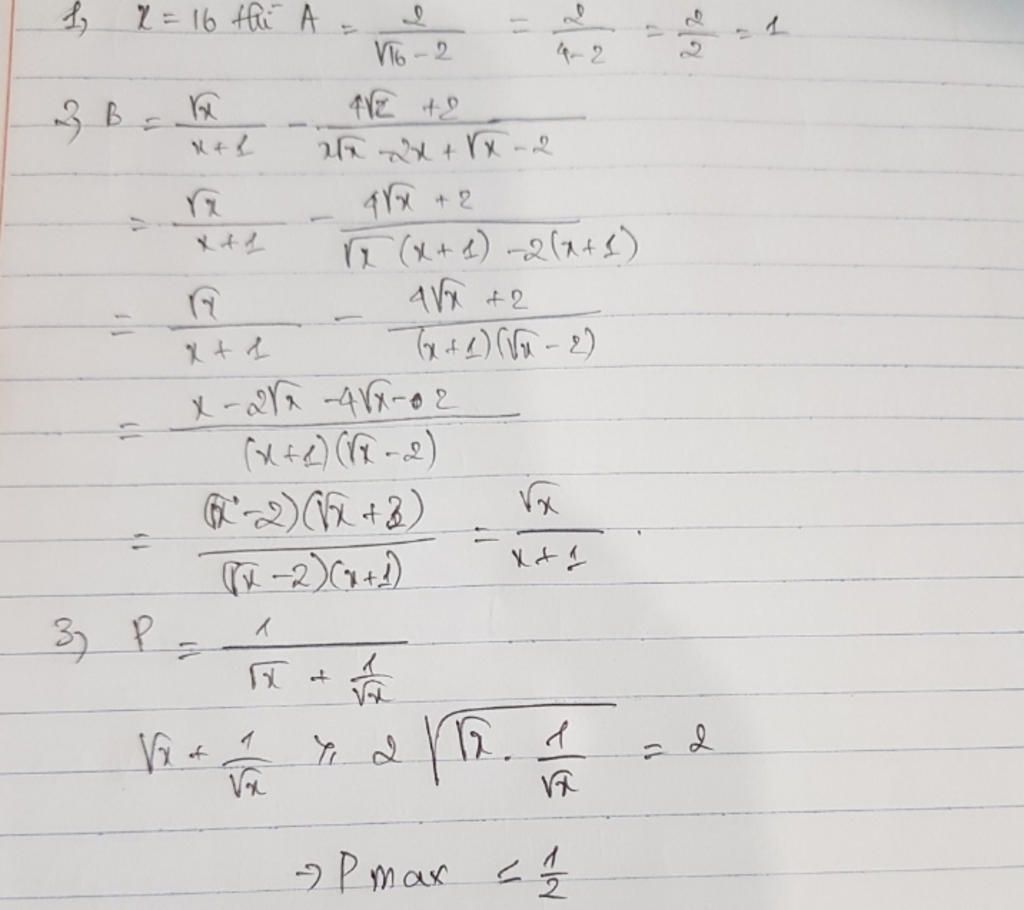 1, x = 16 thì A = 2/(√16 - 2) = 2/(4 - 2) = 2/2 = 1
2, B = √x/(x + 1) - (4√x + 2)/(x√x - 2x + √x - 2)
= √x/(x + 1) - (4√x + 2)/(√x (x + 1) - 2(x + 1))
= √x/(x + 1) - (4√x + 2)/((x + 1)(√x - 2))
= (x - 2√x - 4√x - 2)/((x + 1)(√x - 2))
= ((√x - 2)(√x + 3))/((√x - 2)(x + 1)) = √x/(x + 1) .
3, P = 1/(√x + 1/√x)
√x + 1/√x ≥ 2√(√x . 1/√x) = 2
→ P max ≤ 1/2